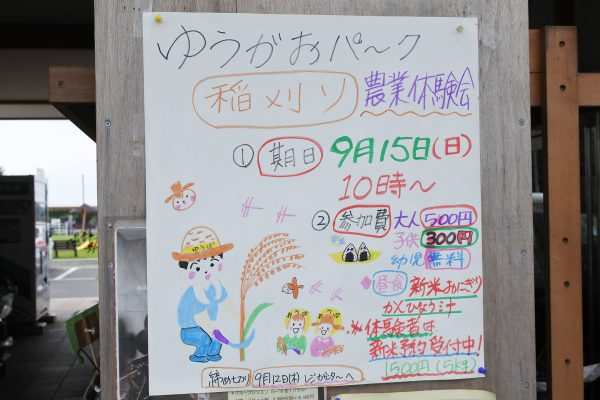 ゆうがおパーク
稲刈り 農業体験会
① 期日 9月15日(日)
10時〜
② 参加費 大人 500円
子供 300円
幼児 無料
◆昼食 新米おにぎり
かんぴょう汁
※体験者は
新米予約受付中!
1500円(5kg)
ゆうがお
締めせ切り 9月12日(木) レジカウンターへ